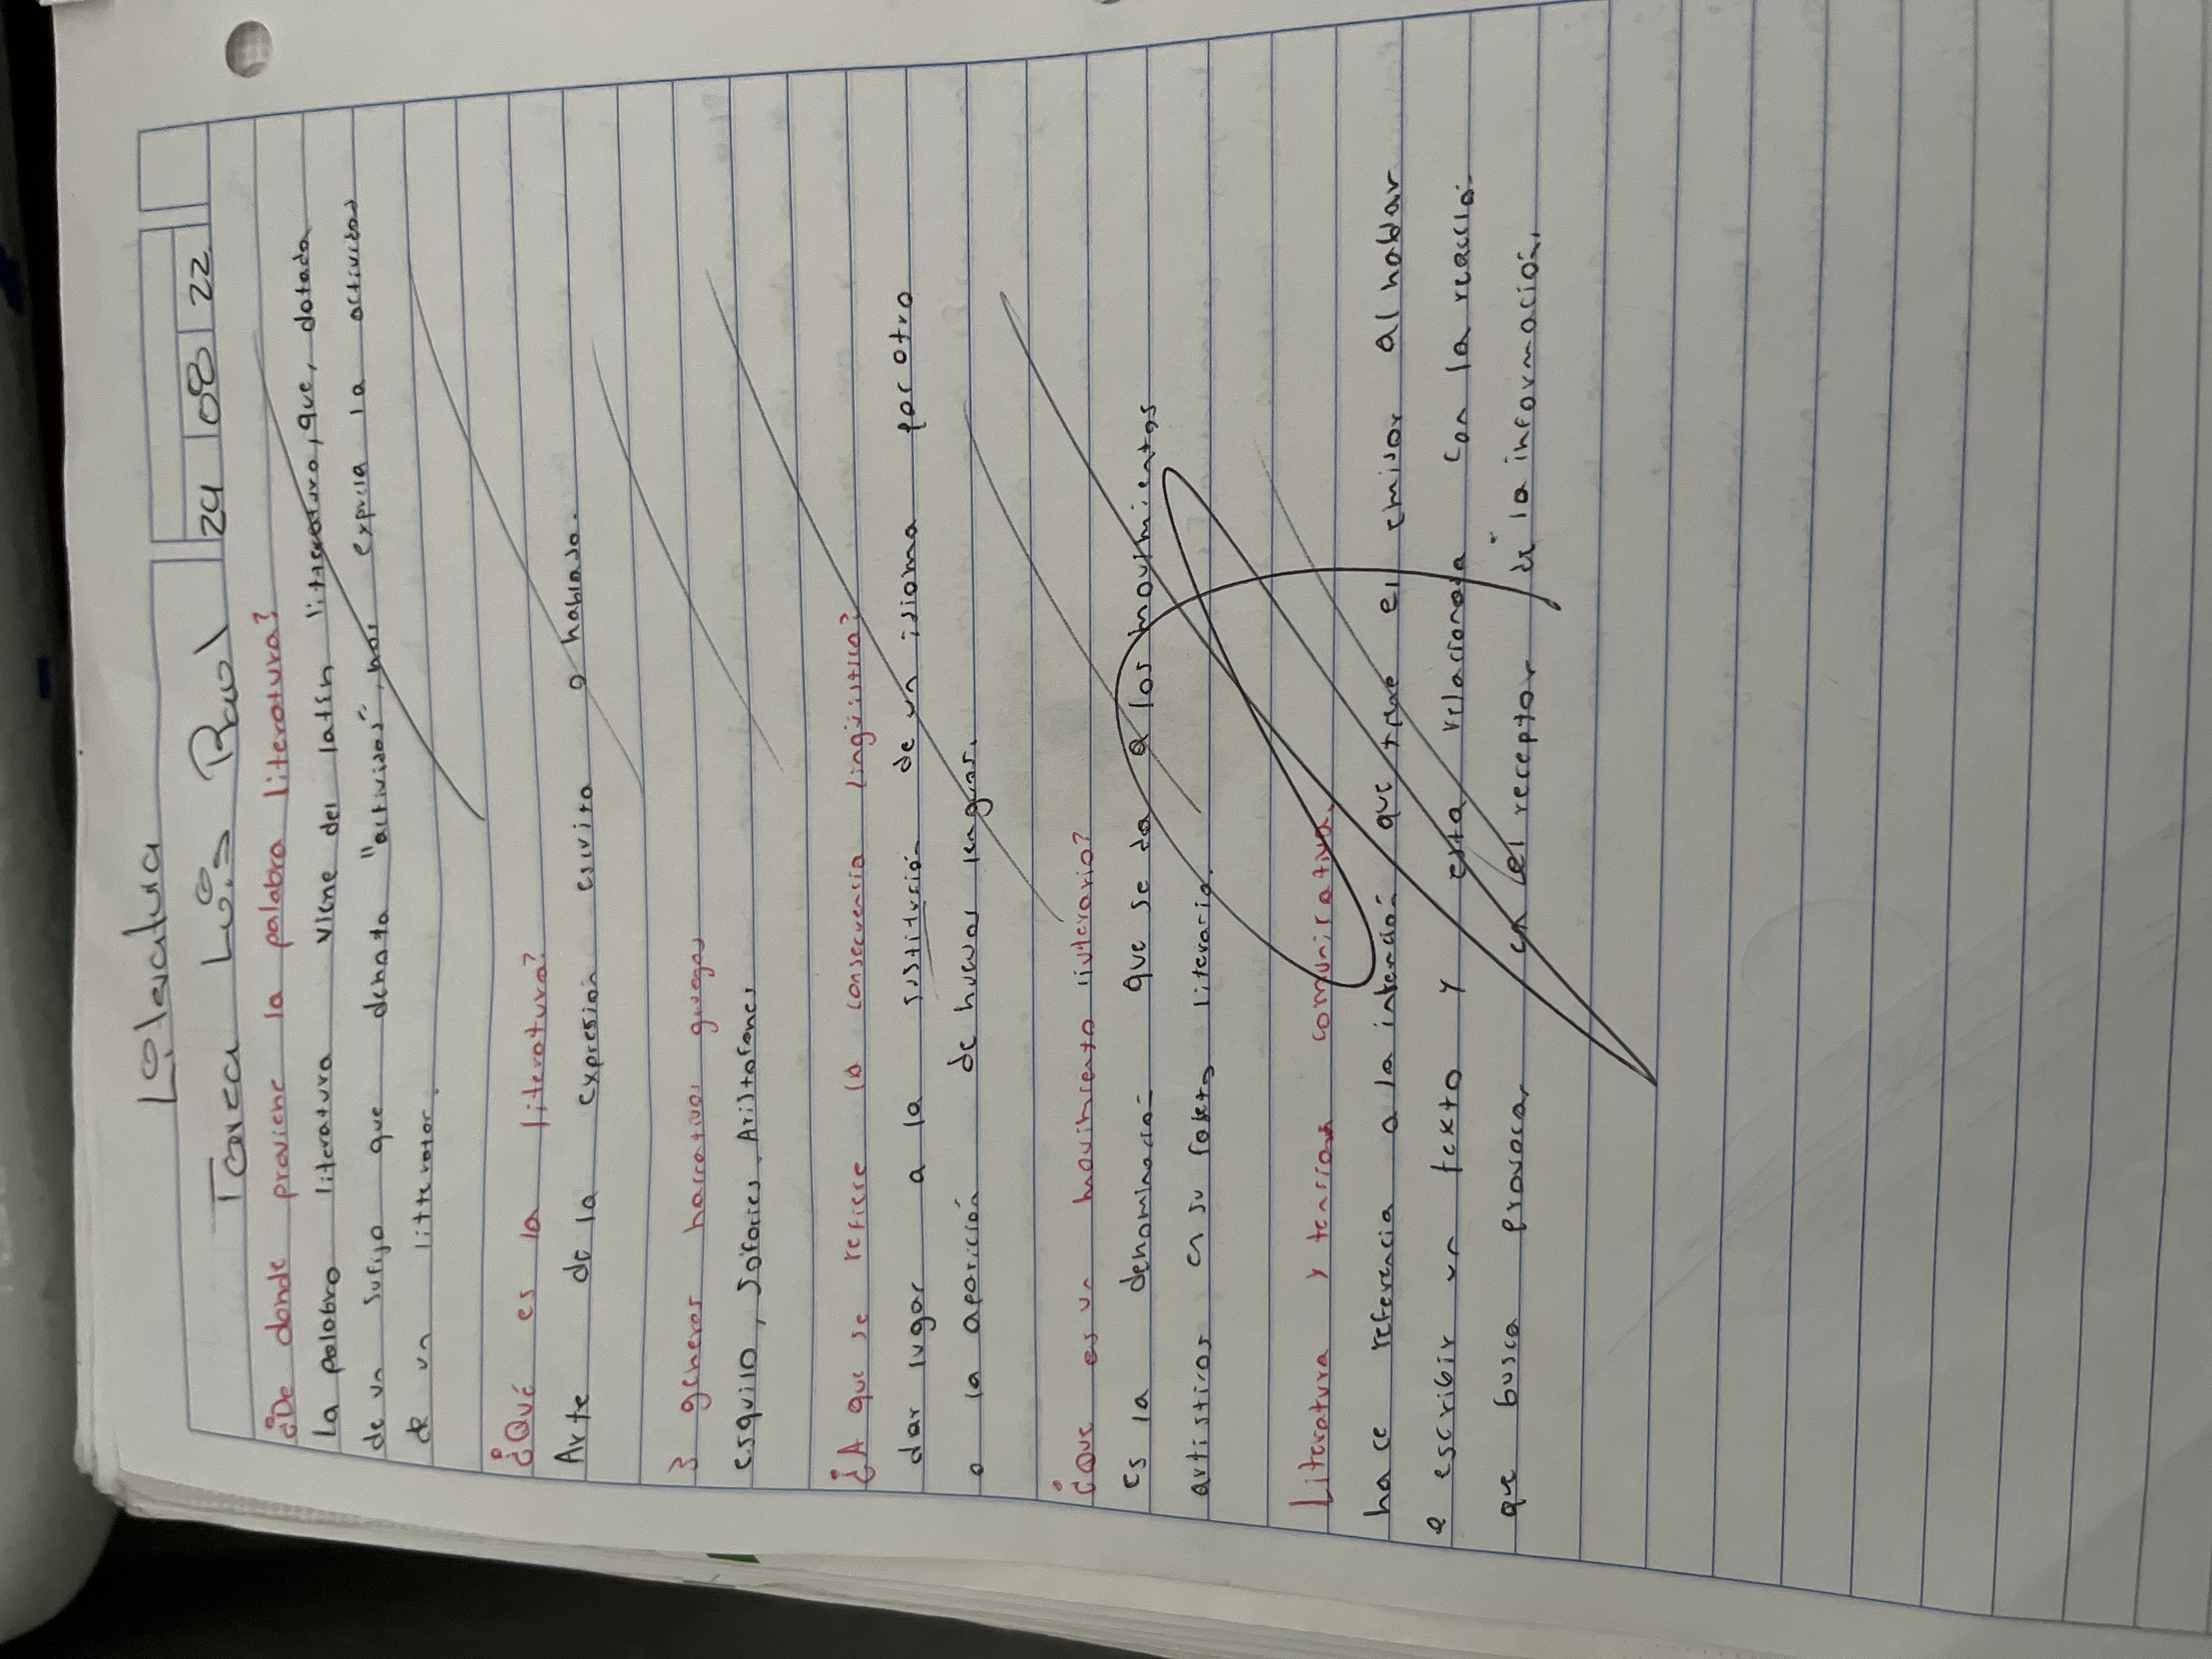 Literatura
Tarea Luis Raul 24 08 22
¿De donde proviene la palabra literatura?
La palabra literatura viene del latín litteratura, que, dotada
de un sufijo que denota "actividad", nos expresa la actividad
de un litterator.
¿Qué es la literatura?
Arte de la expresion escrita o hablada.
3 generos narrativos griegos
esquilo, Sofocles. Aristofanes
¿A que se refiere la consecuencia lingüistica?
dar lugar a la sustitución de un idioma por otro
o la aparición de nuevas lenguas.
¿Que es un movimiento literario?
es la denominación que se da a los movimientos
artisticos en su literario.
Literatura y comunicativa.
hace referencia a la intención que tiene el emisor al hablar
e escribir un texto y esta relacionada con la reacció-
que busca provocar en el receptor de la información.